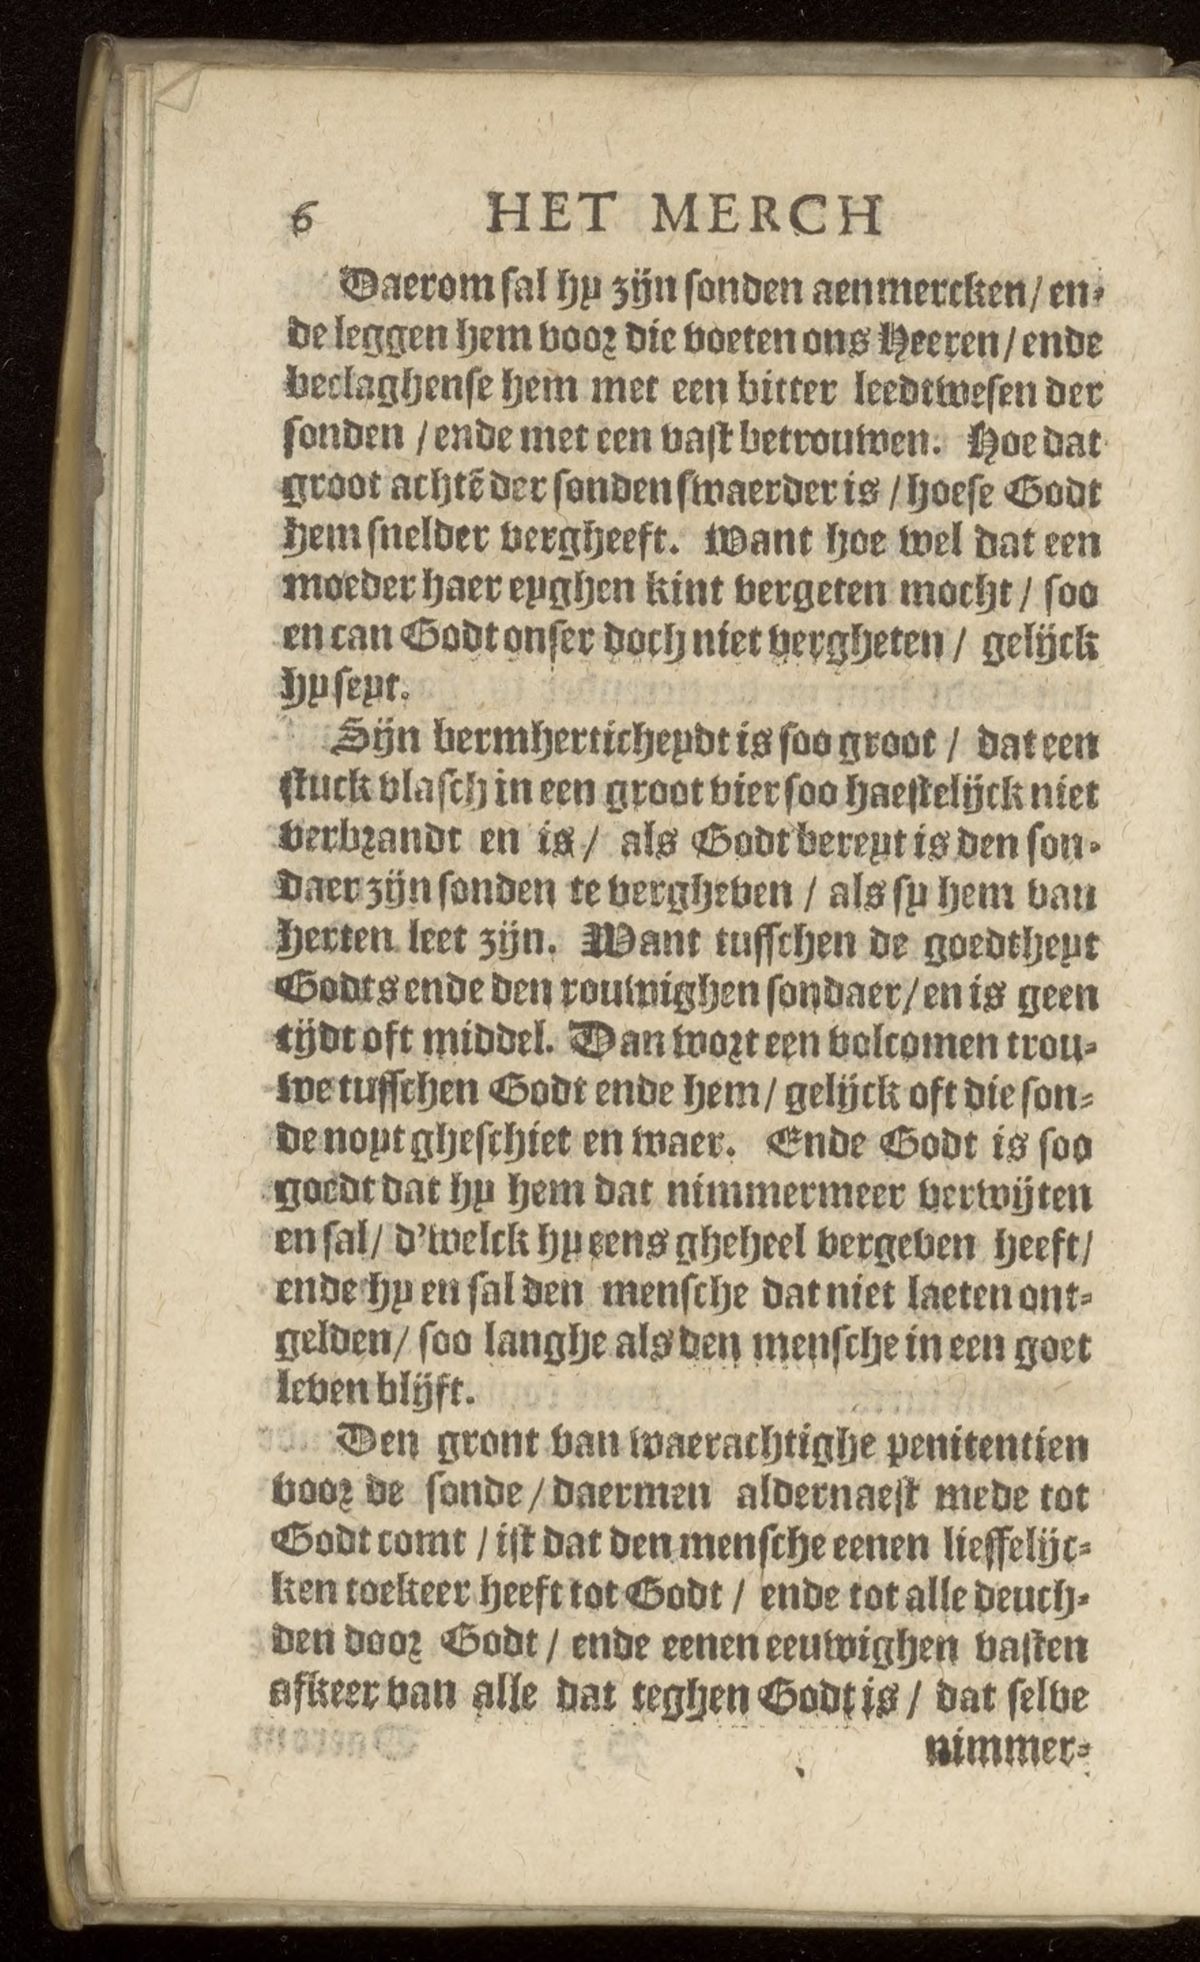 6 HET MERCH
Daerom sal hy zijn sonden aenmercken/ en-
de leggen hem voor die voeten ons Heeren/ ende
beclaghense hem met een bitter leedtwesen der
sonden / ende met een vast betrouwen. Hoe dat
groot achtē der sonden swaerder is / hoese Godt
hem snelder vergheeft. Want hoe wel dat een
moeder haer eyghen kint vergeten mocht / soo
en can Godt onser doch niet vergheten / gelijck
hy seyt.
Sijn bermherticheydt is soo groot / dat een
stuck vlasch in een groot vier soo haestelijck niet
verbrandt en is / als Godt bereyt is den son-
daer zijn sonden te vergheven / als sy hem van
herten leet zijn. Want tusschen de goedtheyt
Godts ende den rouwighen sondaer/ en is geen
tijdt oft middel. Dan wort een volcomen trou-
we tusschen Godt ende hem/ gelijck oft die son-
de noyt gheschiet en waer. Ende Godt is soo
goedt dat hy hem dat nimmermeer verwijten
en sal/ d'welck hy eens gheheel vergeven heeft/
ende hy en sal den mensche dat niet laeten ont-
gelden/ soo langhe als den mensche in een goet
leven blijft.
Den gront van waerachtighe penitentien
voor de sonde / daermen aldernaest mede tot
Godt comt / ist dat den mensche eenen lieffelijc-
ken toekeer heeft tot Godt / ende tot alle deuch-
den door Godt / ende eenen eeuwighen vasten
afkeer van alle dat teghen Godt is / dat selve
nimmer-